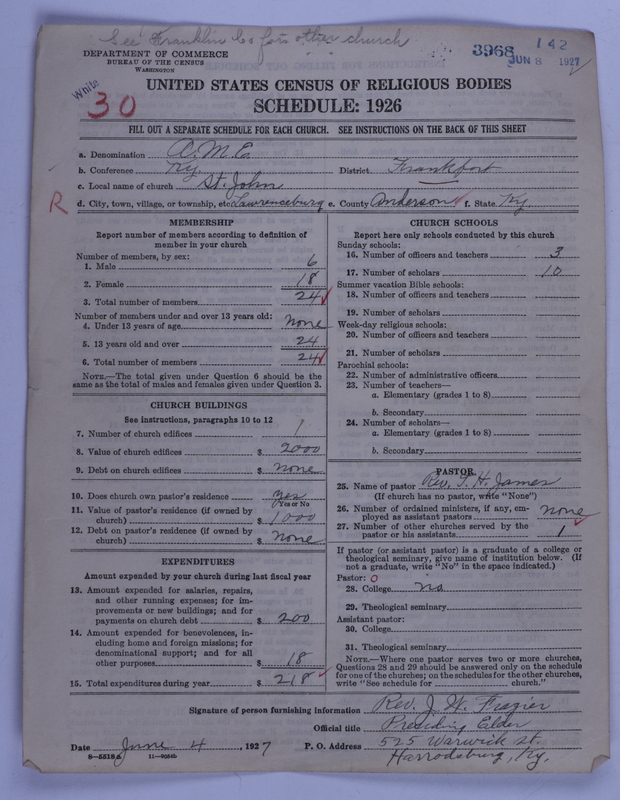 See Franklin Co for other church
DEPARTMENT OF COMMERCE
BUREAU OF THE CENSUS
WASHINGTON
3968
142
JUN 8 1927
White
30
UNITED STATES CENSUS OF RELIGIOUS BODIES
SCHEDULE: 1926
FILL OUT A SEPARATE SCHEDULE FOR EACH CHURCH. SEE INSTRUCTIONS ON THE BACK OF THIS SHEET
a. Denomination A.M.E.
b. Conference Ky. District Frankfort
c. Local name of church St. John
R d. City, town, village, or township, etc. Lawrenceburg e. County Anderson f. State Ky.
MEMBERSHIP
Report number of members according to definition of
member in your church
Number of members, by sex:
1. Male 6
2. Female 18
3. Total number of members 24
Number of members under and over 13 years old:
4. Under 13 years of age None
5. 13 years old and over 24
6. Total number of members 24
NOTE.—The total given under Question 6 should be the
same as the total of males and females given under Question 3.
CHURCH BUILDINGS
See instructions, paragraphs 10 to 12
7. Number of church edifices 1
8. Value of church edifices $ 2000
9. Debt on church edifices $ None
10. Does church own pastor's residence yes
Yes or No
11. Value of pastor's residence (if owned by
church) $ 1000
12. Debt on pastor's residence (if owned by
church) $ None
EXPENDITURES
Amount expended by your church during last fiscal year
13. Amount expended for salaries, repairs,
and other running expenses; for im-
provements or new buildings; and for
payments on church debt $ 200
14. Amount expended for benevolences, in-
cluding home and foreign missions; for
denominational support; and for all
other purposes $ 18
15. Total expenditures during year $ 218
CHURCH SCHOOLS
Report here only schools conducted by this church
Sunday schools:
16. Number of officers and teachers 3
17. Number of scholars 10
Summer vacation Bible schools:
18. Number of officers and teachers
19. Number of scholars
Week-day religious schools:
20. Number of officers and teachers
21. Number of scholars
Parochial schools:
22. Number of administrative officers
23. Number of teachers—
a. Elementary (grades 1 to 8)
b. Secondary
24. Number of scholars—
a. Elementary (grades 1 to 8)
b. Secondary
PASTOR
25. Name of pastor Rev. T. H. James
(If church has no pastor, write "None")
26. Number of ordained ministers, if any, em-
ployed as assistant pastors none
27. Number of other churches served by the
pastor or his assistants 1
If pastor (or assistant pastor) is a graduate of a college or
theological seminary, give name of institution below. (If
not a graduate, write "No" in the space indicated.)
Pastor: 0
28. College no
29. Theological seminary
Assistant pastor:
30. College
31. Theological seminary
NOTE.—Where one pastor serves two or more churches,
Questions 28 and 29 should be answered only on the schedule
for one of the churches; on the schedules for the other churches,
write "See schedule for church."
Signature of person furnishing information Rev. J. W. Frazier
Official title Presiding Elder
Date June 4, 1927 P. O. Address 525 Warwick st.
8—5518 a 11—9054b Harrodsburg, Ky.